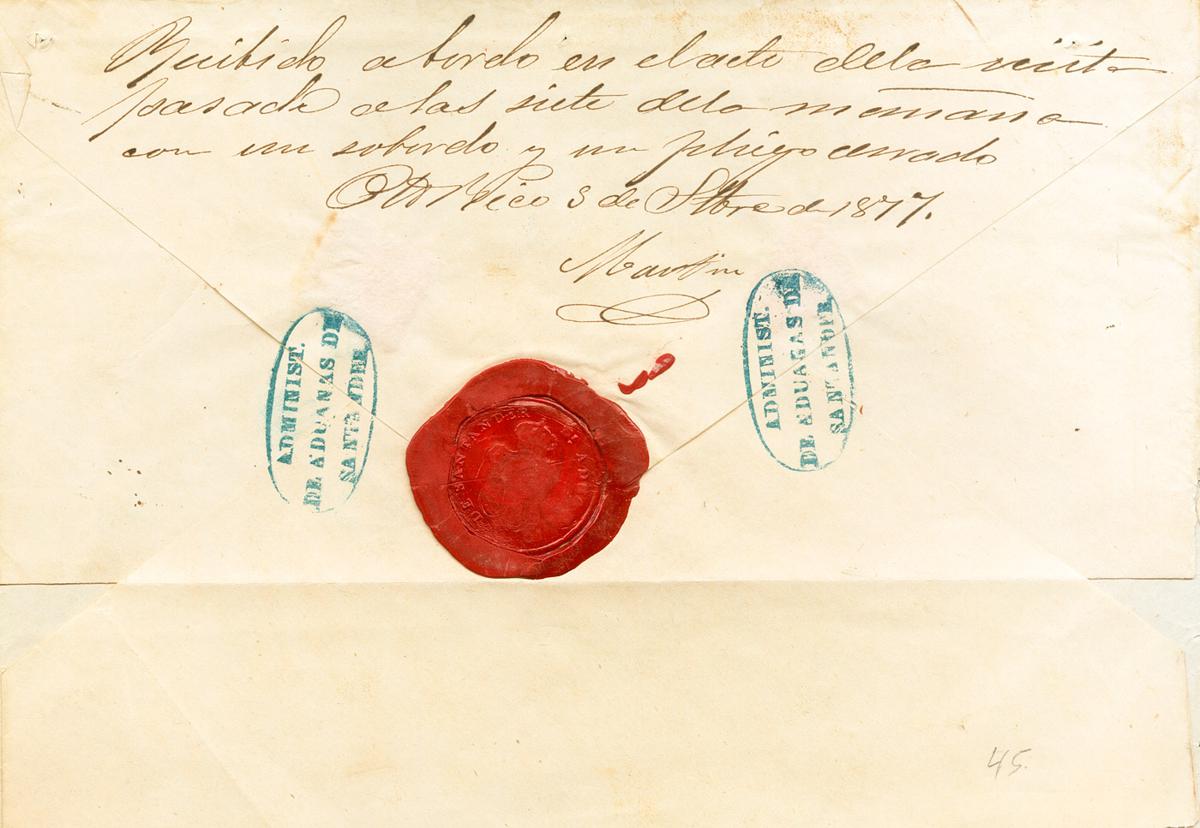 Recibido abordo en el acto dela visita
pasada alas siete dela mañana
con un sobordo y un pliego cerrado
Pto Rico 3 de Stbre de 1877.
Martin
ADMINIST.
DE ADUANAS DE
SANTANDER
ADMINIST.
DE ADUANAS DE
SANTANDER
DE SANTANDER
45